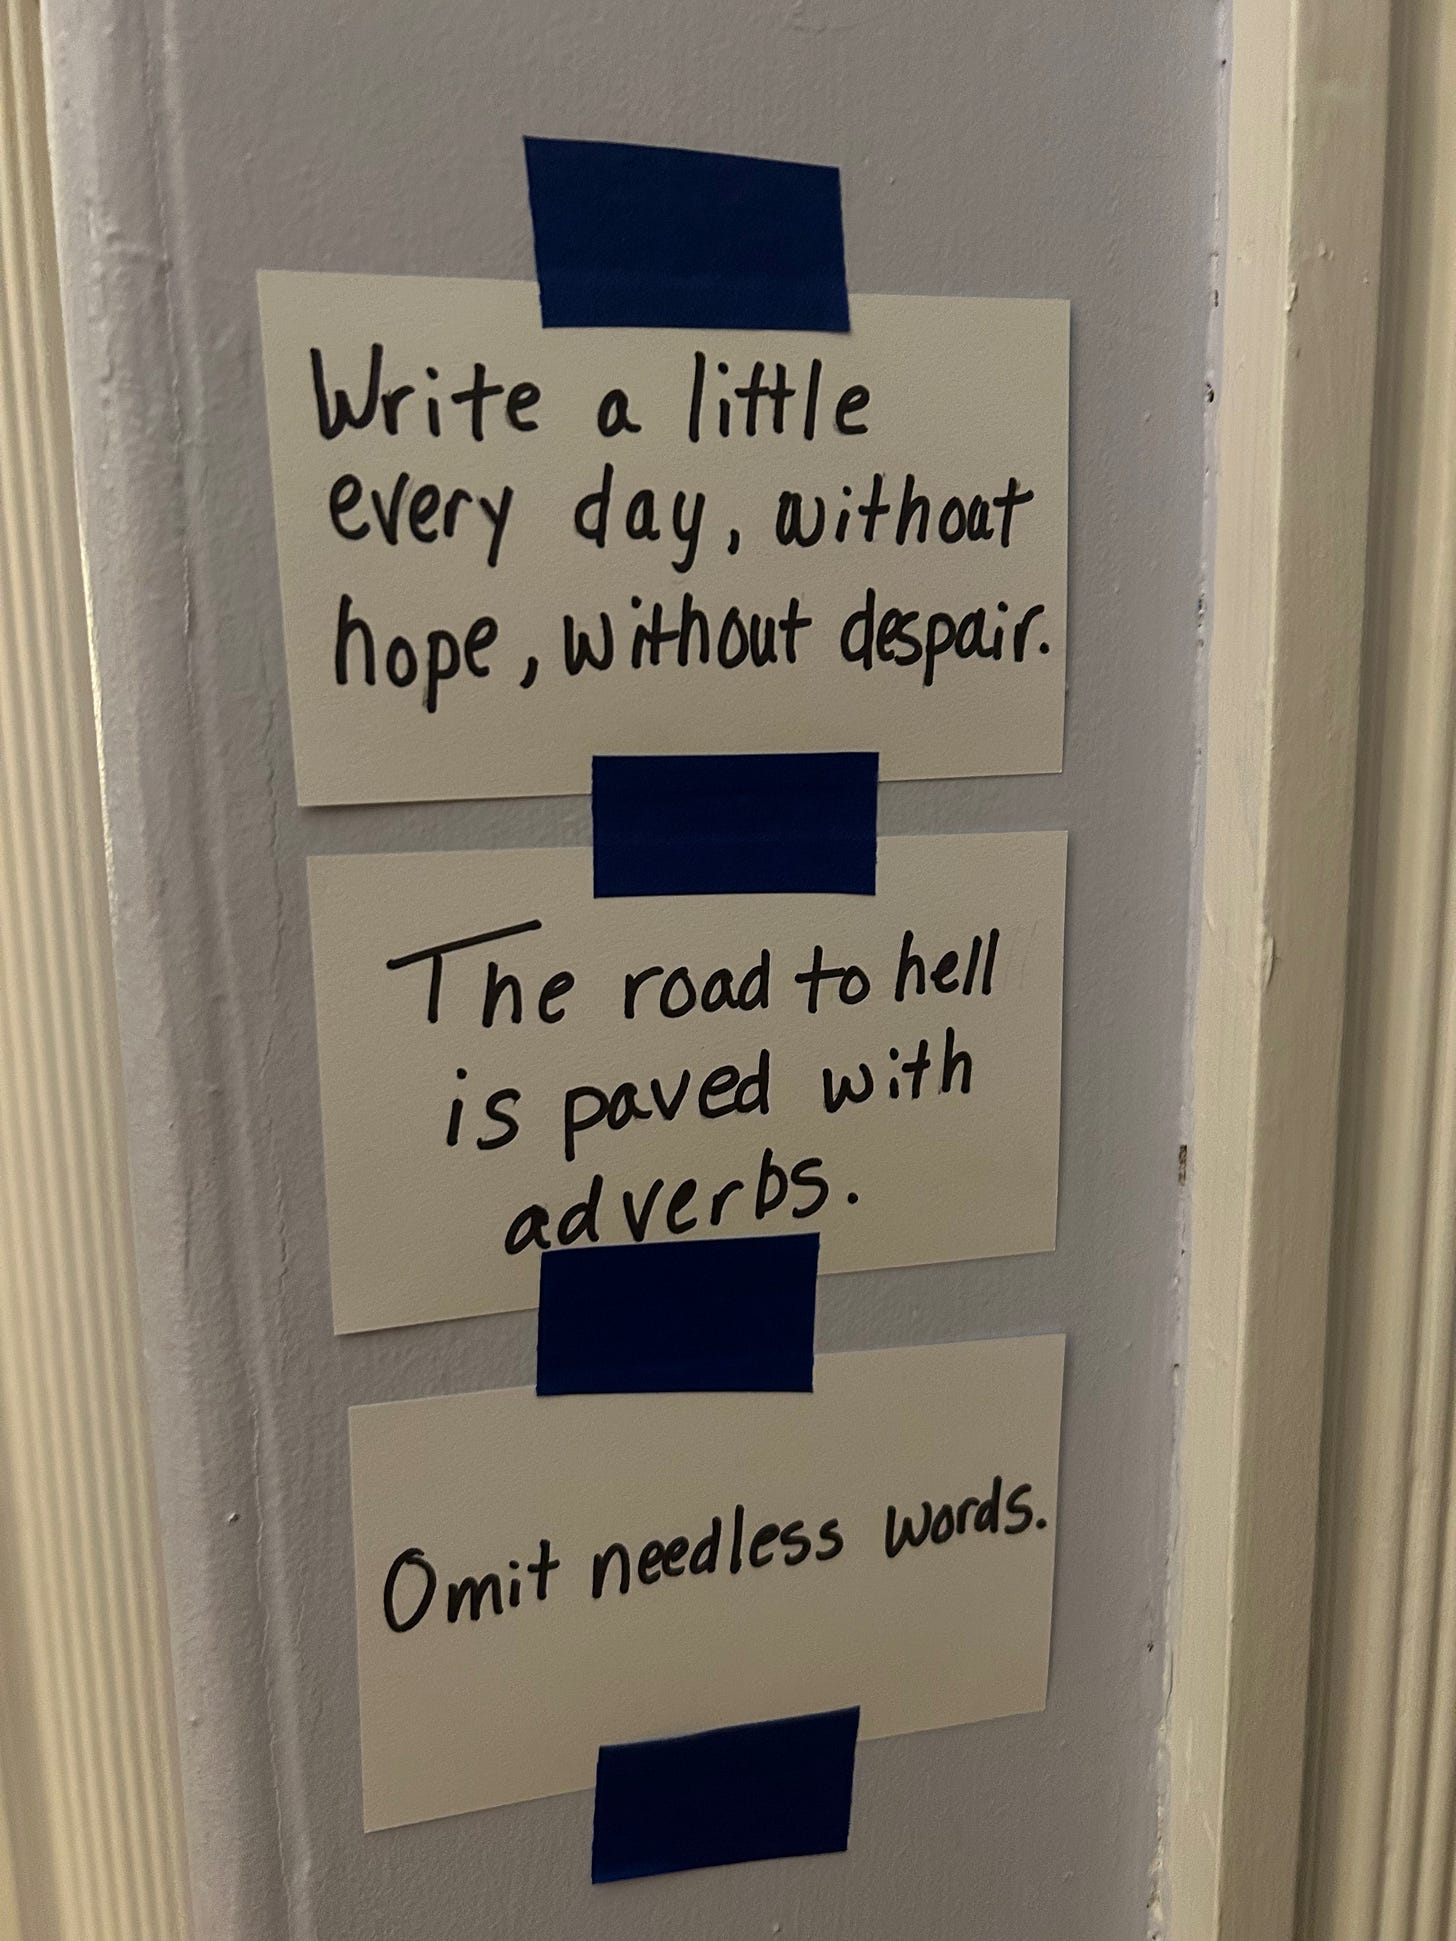 Write a little
every day, without
hope, without despair.
The road to hell
is paved with
adverbs.
Omit needless words.